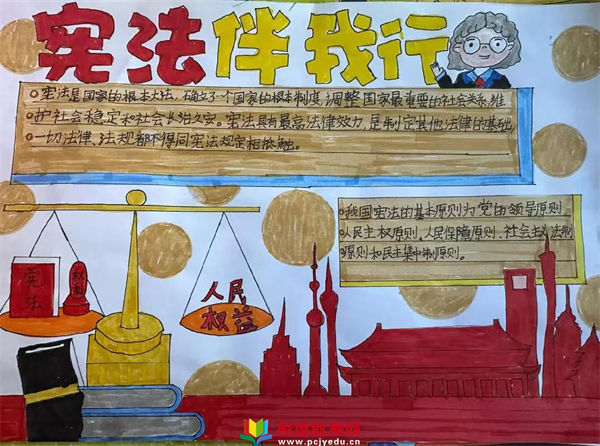 宪法伴我行
宪法是国家的根本大法,确立了一个国家的根本制度,调整国家最重要的社会关系,维
护社会稳定和社会长治久安。宪法具有最高法律效力,是制定其他法律的基础,
一切法律、法规都不得同宪法规定相抵触。
我国宪法的基本原则为党的领导原则
人民主权原则、人民保障原则、社会主义法制
原则和民主集中制原则。
宪法
权利
人民
权益
www.pcjyedu.cn